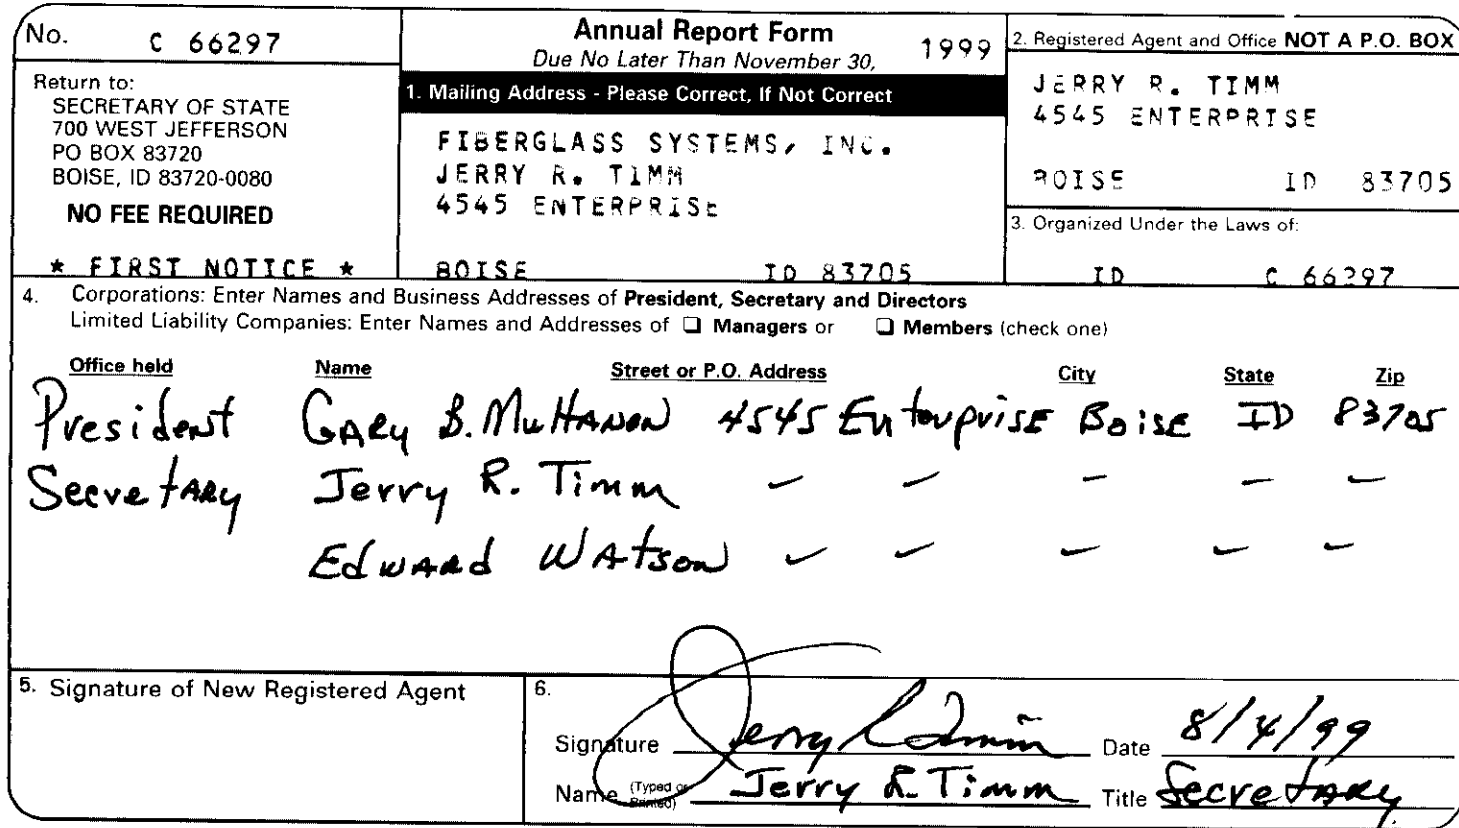 No. C 66297
Annual Report Form
Due No Later Than November 30, 1999
Return to:
SECRETARY OF STATE
700 WEST JEFFERSON
PO BOX 83720
BOISE, ID 83720-0080
NO FEE REQUIRED
* FIRST NOTICE *
1. Mailing Address - Please Correct, If Not Correct
FIBERGLASS SYSTEMS, INC.
JERRY R. TIMM
4545 ENTERPRISE
BOISE ID 83705
2. Registered Agent and Office NOT A P.O. BOX
JERRY R. TIMM
4545 ENTERPRISE
BOISE ID 83705
3. Organized Under the Laws of:
ID C 66297
4. Corporations: Enter Names and Business Addresses of President, Secretary and Directors
Limited Liability Companies: Enter Names and Addresses of ❑ Managers or ❑ Members (check one)
Office held Name Street or P.O. Address City State Zip
President Gary B. 4545 Enterprise Boise ID 83705
Secretary Jerry R. Timm - - - - -
Edward Watson - - - - -
5. Signature of New Registered Agent
6.
Signature Jerry R Timm Date 8/4/99
Name (Typed or Printed) Jerry R. Timm Title Secretary